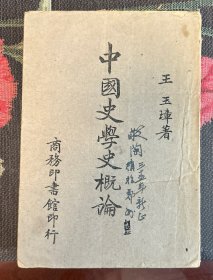 王玉璋著
中國史學史概論
商務印書館印行